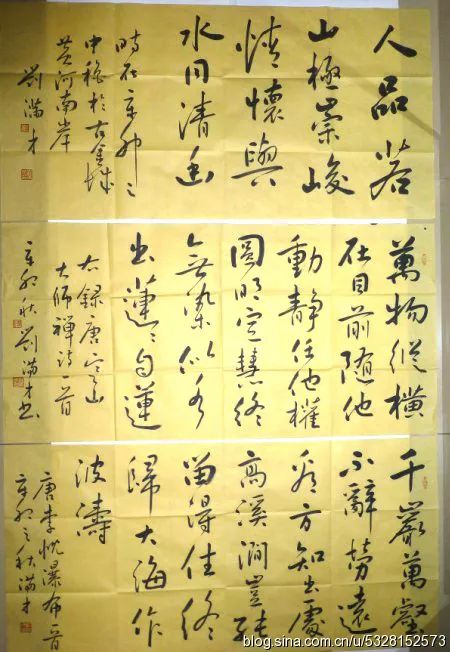 人品若
山極崇峻
情懷與
水同清幽
時在辛卯之
中穐於古金城
黄河南岸
劉滿才
萬物縱横
在目前随他
動靜任他權
圓明定慧終
無染似水
出蓮〻自蓮
右録唐山
大师禅詩一首
辛卯秋劉滿才书
千巖萬壑
不辭勞遠
看方知出處
高溪澗豈能
留得住终
歸大海作
波濤
唐李忱瀑布一首
辛卯之秋滿才
blog.sina.com.cn/u/5328152573